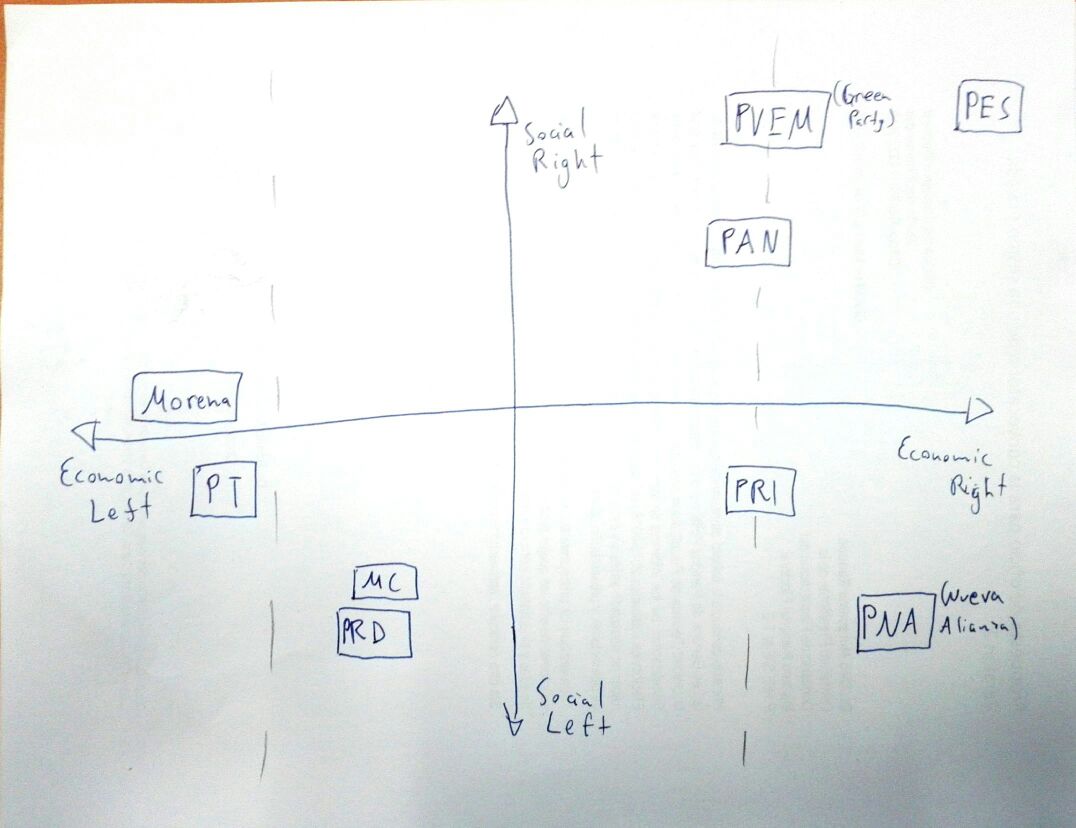 Social
Right
PVEM
(Green
Party)
PES
PAN
Morena
Economic
Left
PT
Economic
Right
PRI
MC
PRD
PNA
(Nueva
Alianza)
Social
Left